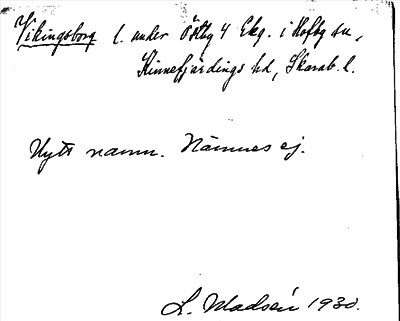 Vikingsborg l. under Östbg 4 Ekg. i Hofby sn,
Kinnefjärdings hd, Skarab. l.
Nytt namn. Nämnes ej.
L. Madsén 1930.